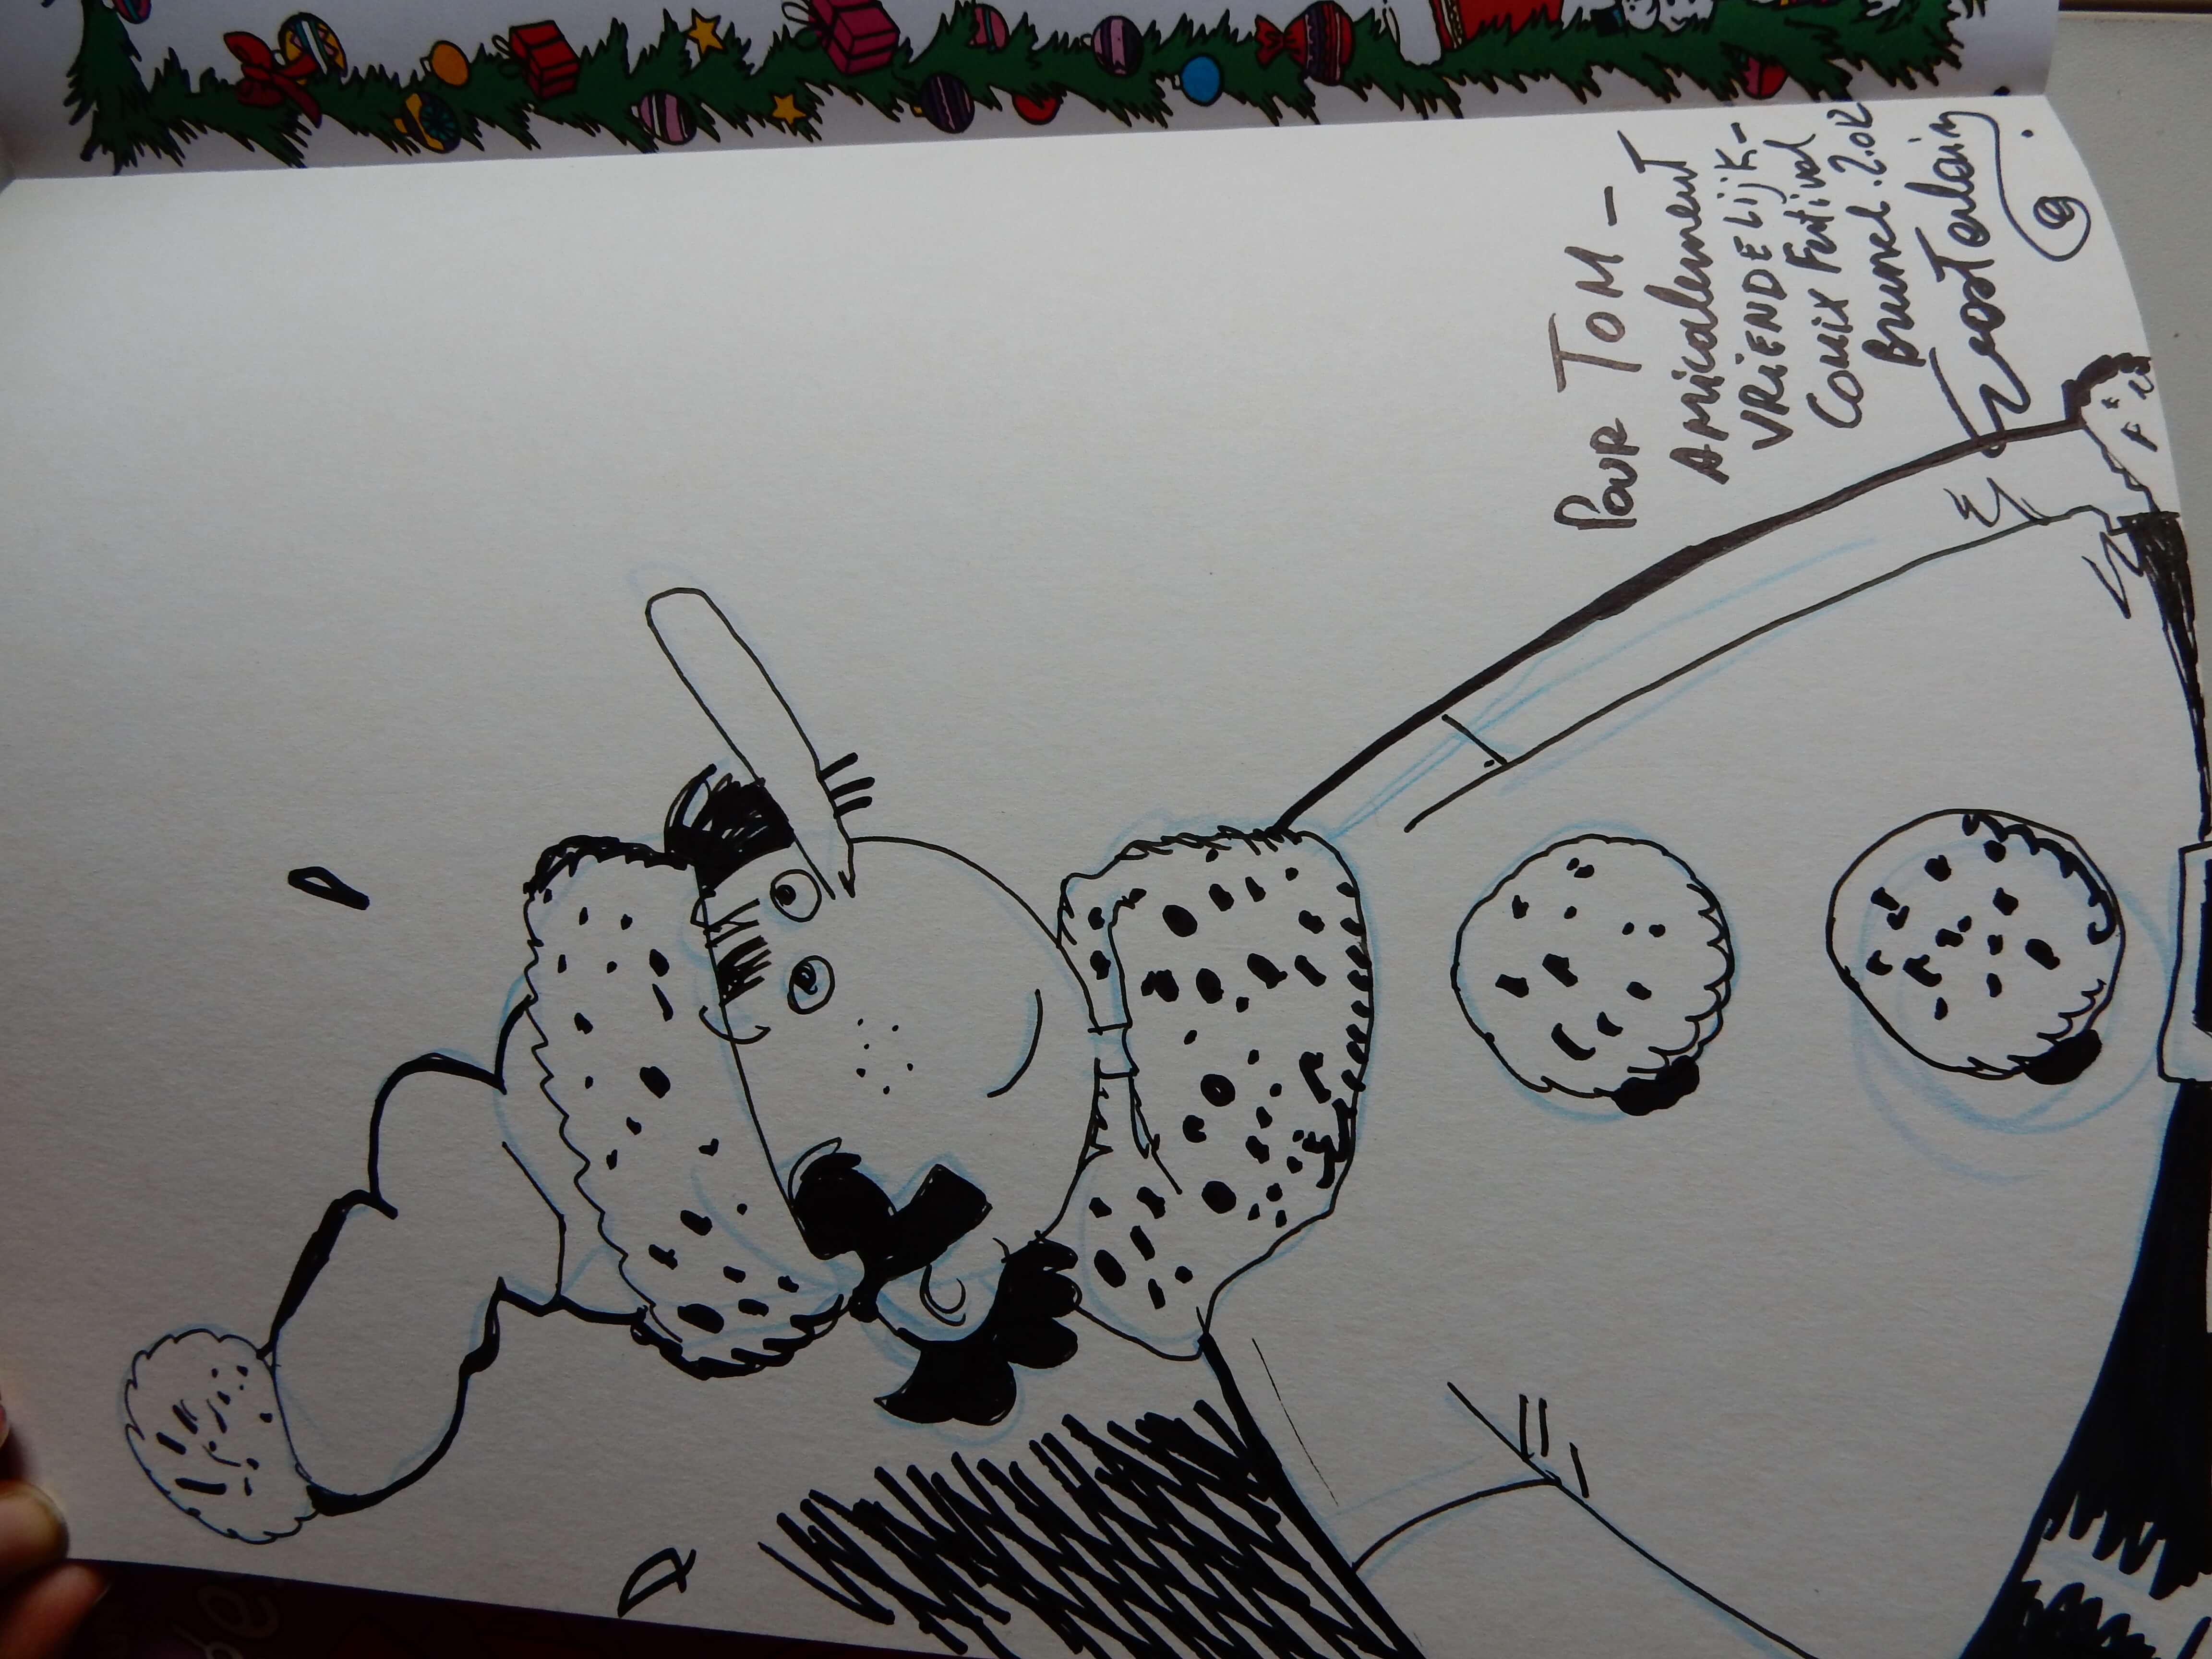 POUR TOM –
AMicalement
VRiENDELijK –
COMiX Festival
Brussel . 2.012